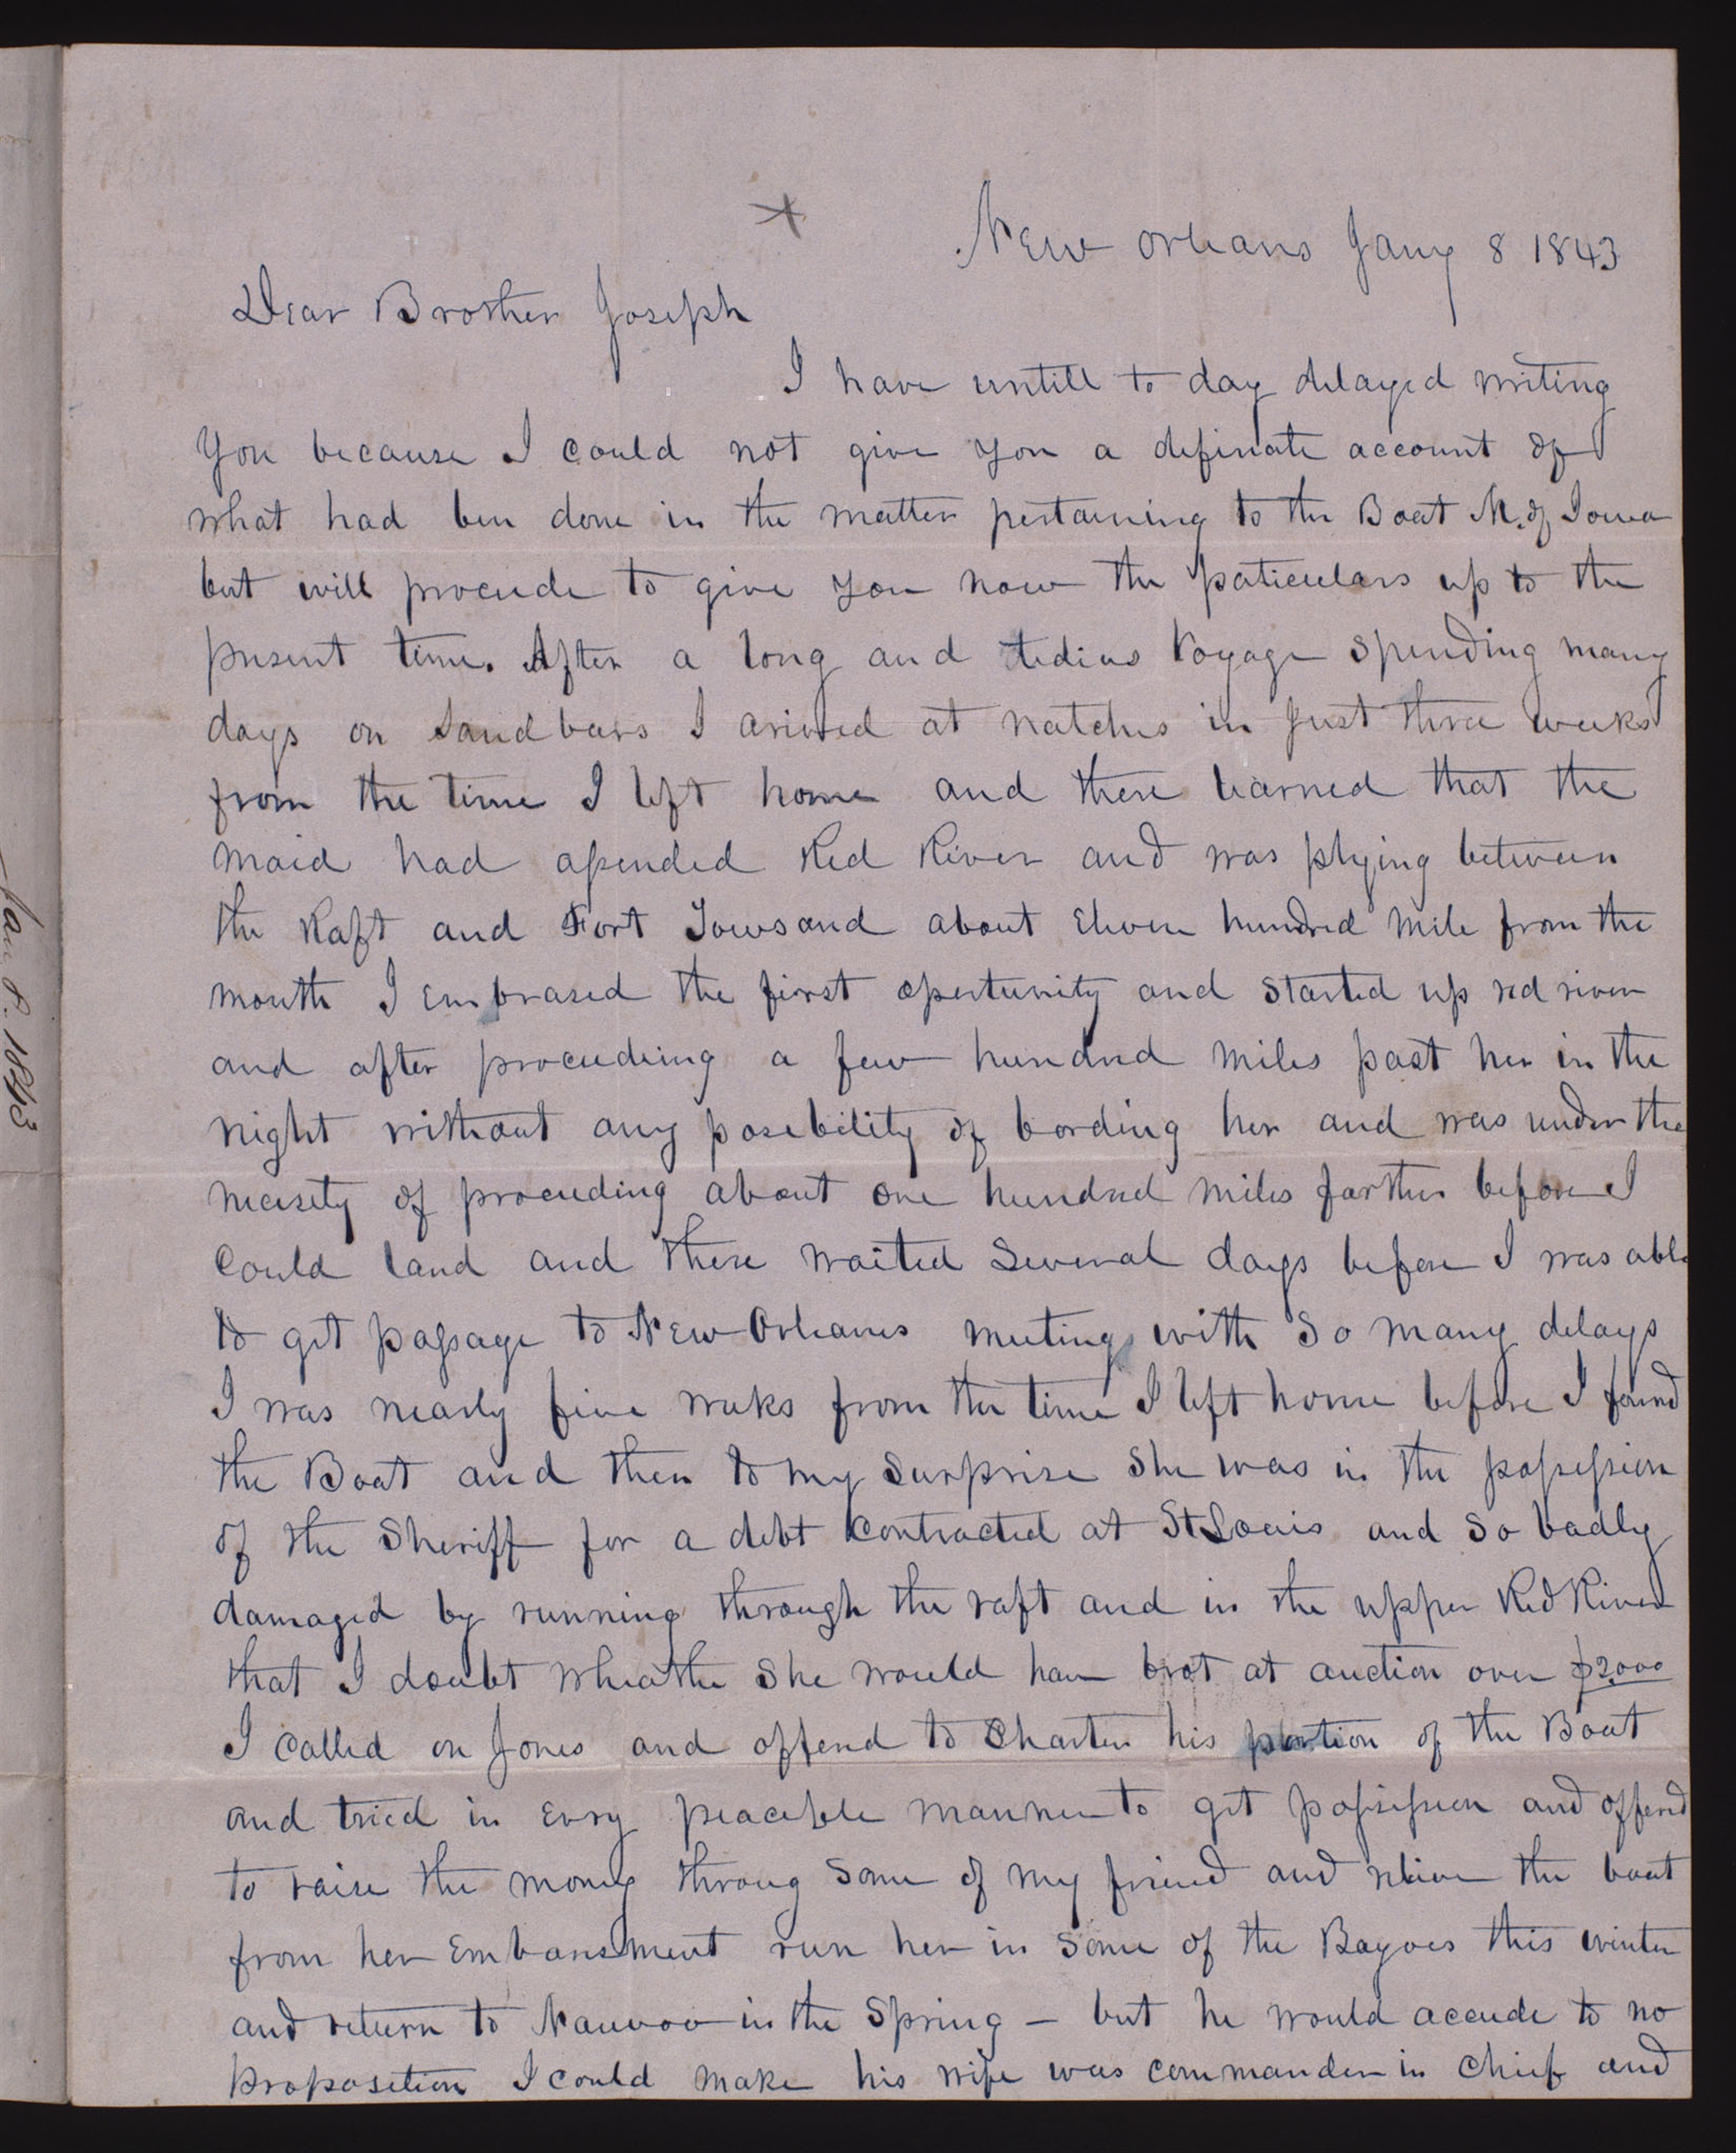 New Orleans Jany 8 1843
Dear Brother Joseph
I have untill to day delayed writing
you because I could not give you a definate account of
what had ben done in the matter pertaining to the Boat M. of Iowa
but will proceede to give you now the paticulars up to the
present time. After a long and tedius voyage spending many
days on sandbars I arived at natches in just three weeks
from the time I left home and there learned that the
maid had asended Red River and was plying between
the Raft and Fort Towsand about Eleven hundred mile from the
mouth I embrased the first opertunity and started up red river
and after proceedeing a few hundred miles past her in the
night without any posebility of bording her and was under the
necesety of proceeding about one hundred miles farther before I
could land and there waited several days before I was able
to get passage to New Orleans meeting with so many delays
I was nearly five weeks from the time I left home before I found
the Boat and then to my surprise she was in the possession
of the Sheriff for a debt contracted at St Louis and so badly
damaged by running through the raft and in the upper Red River
that I doubt wheather she would have brot at auction over $2000
I called on Jones and offered to Charter his portion of the Boat
and tried in evry peaceble manner to get possession and offered
to raise the money throug some of my friend and relieve the boat
from her Embarrasment run her in some of the Bayoes this winter
and return to Nauvoo in the Spring — but he would accede to no
proposition I could make his wife was commander in chief and
Jan 8. 1843